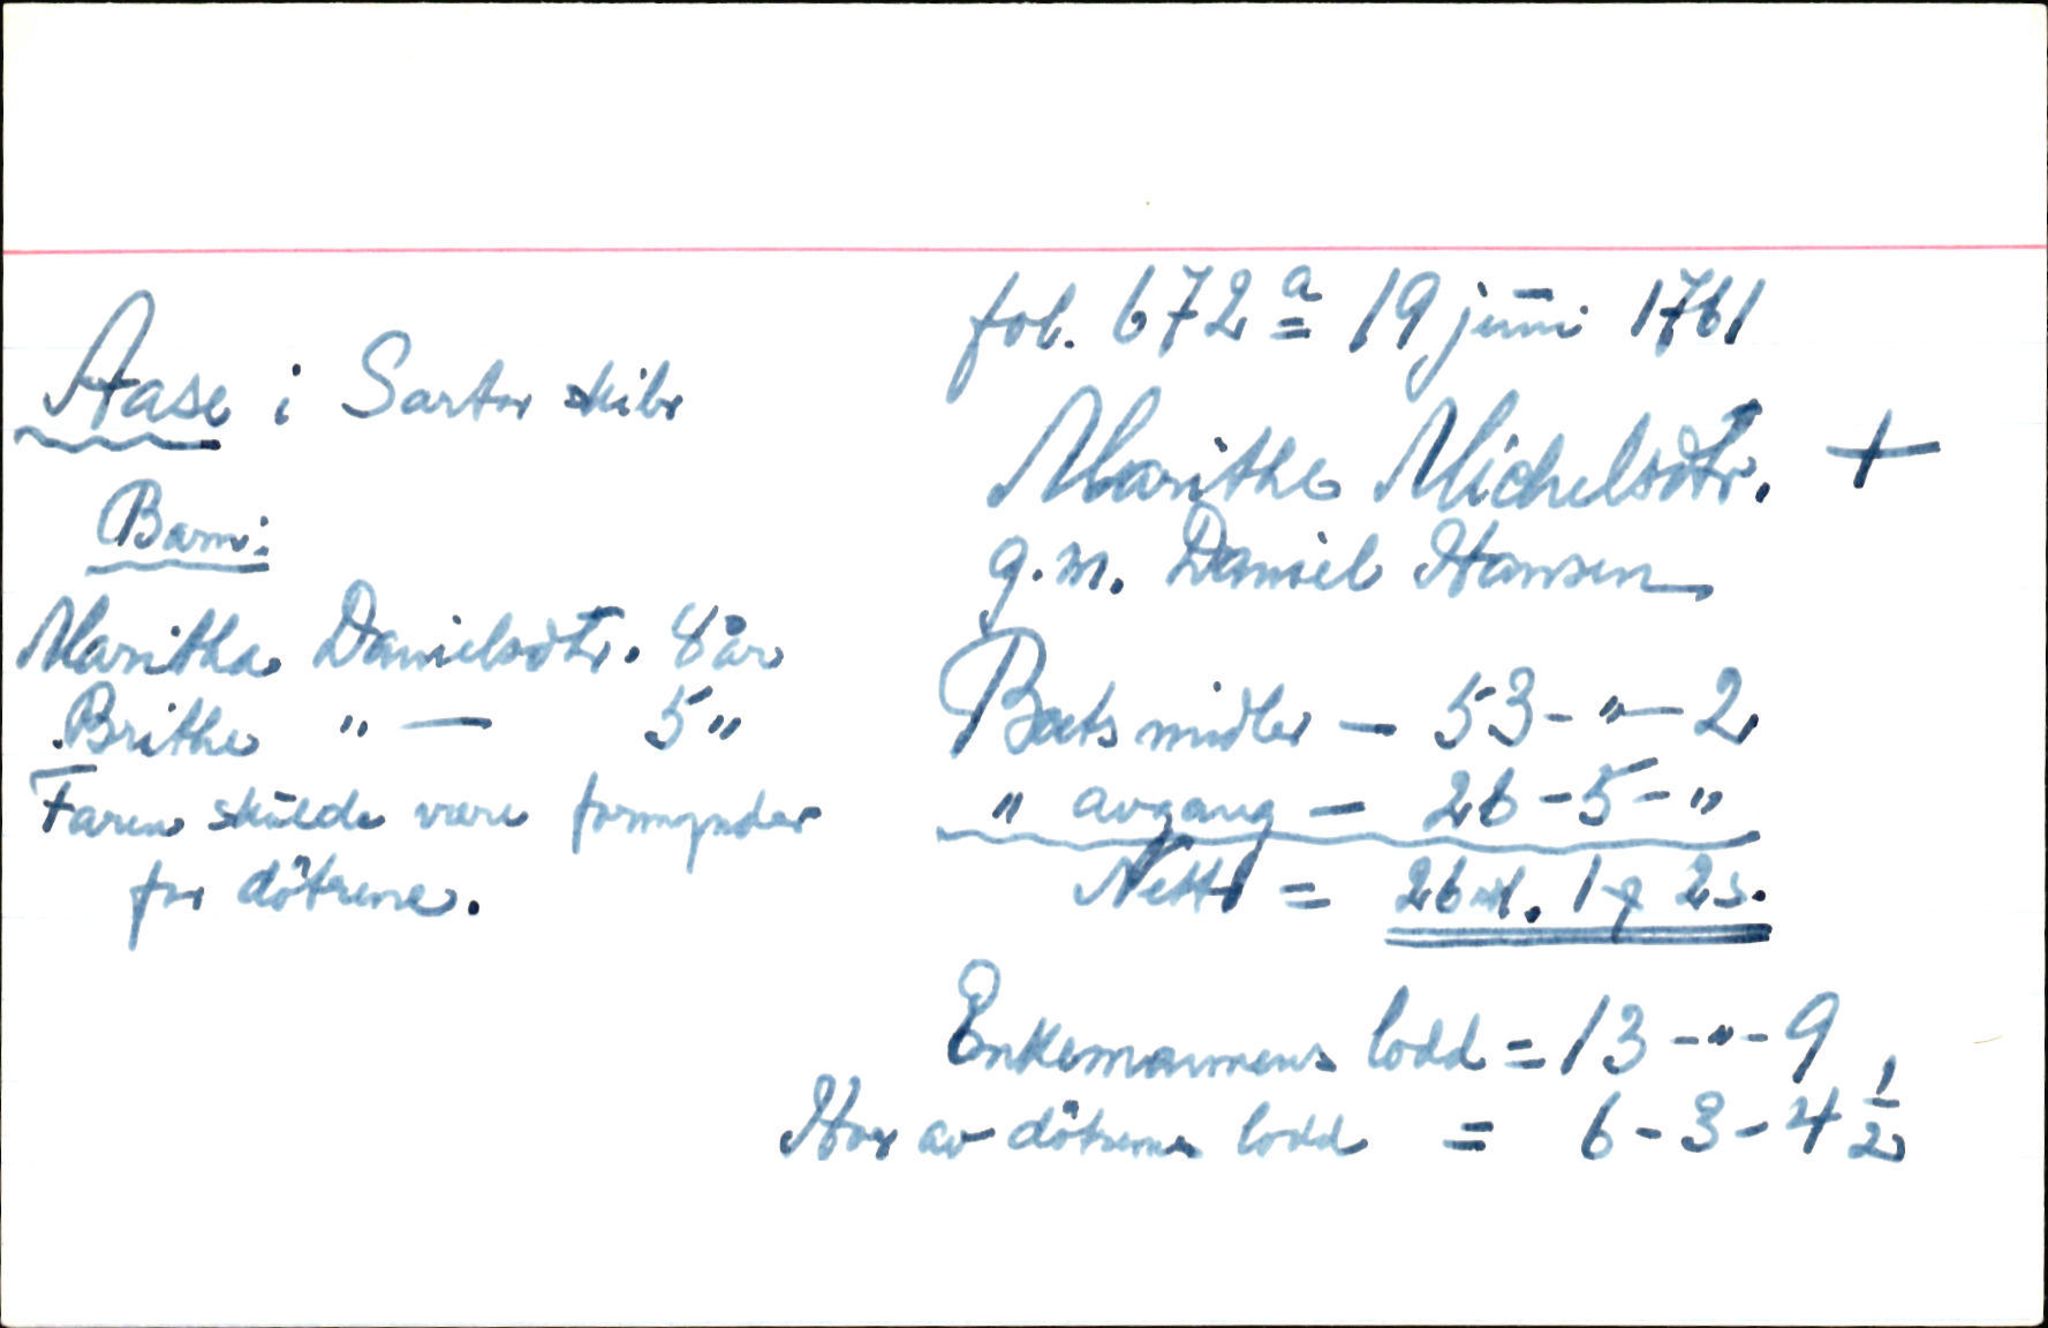 fol. 672 a 19 juni 1761
Aase i Sartor skibr
Marithe Michelsdtr. +
g.m. Daniel Hansen
Barn:
Maritha Danielsdtr. 8 år
Brithe " — 5 "
Faren skulde være formynder
for døtrene.
Boets midler — 53 - " - 2
" avgang — 26 - 5 - "
Netto = 26 rd. 1 ƒ 2 s.
Enkemannens lodd = 13 - " - 9
Hver av døtrenes lodd = 6 - 3 - 4 1/2